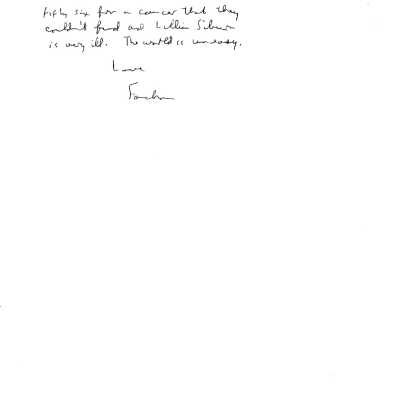 fifty six for a cancer that they
couldn't find and Lillian
is very ill. The world is uneasy.
Love